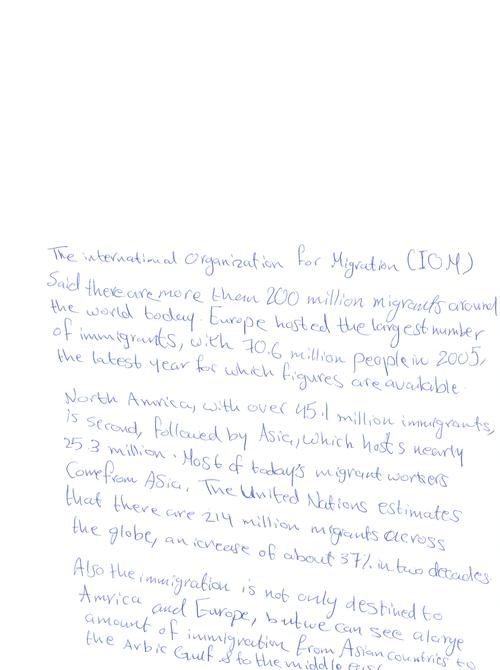 The international Organization for Migration (IOM)
Said there are more them 200 million migrants around
the world today. Europe hosted the largest number
of immigrants, with 70.6 million people in 2005,
the latest year for which figures are available.
North Amrica, with over 45.1 million immigrants,
is second, followed by Asia, which hosts nearly
25.3 million. Most of today's migrant workers
Come from Asia. The United Nations estimates
that there are 214 million migrants across
the globe, an icrease of about 37% in two decades.
Also the immigration is not only destined to
Amrica and Europe, but we can see a large
amount of immigration from Asian countries to
the Arbic Gulf to the middle